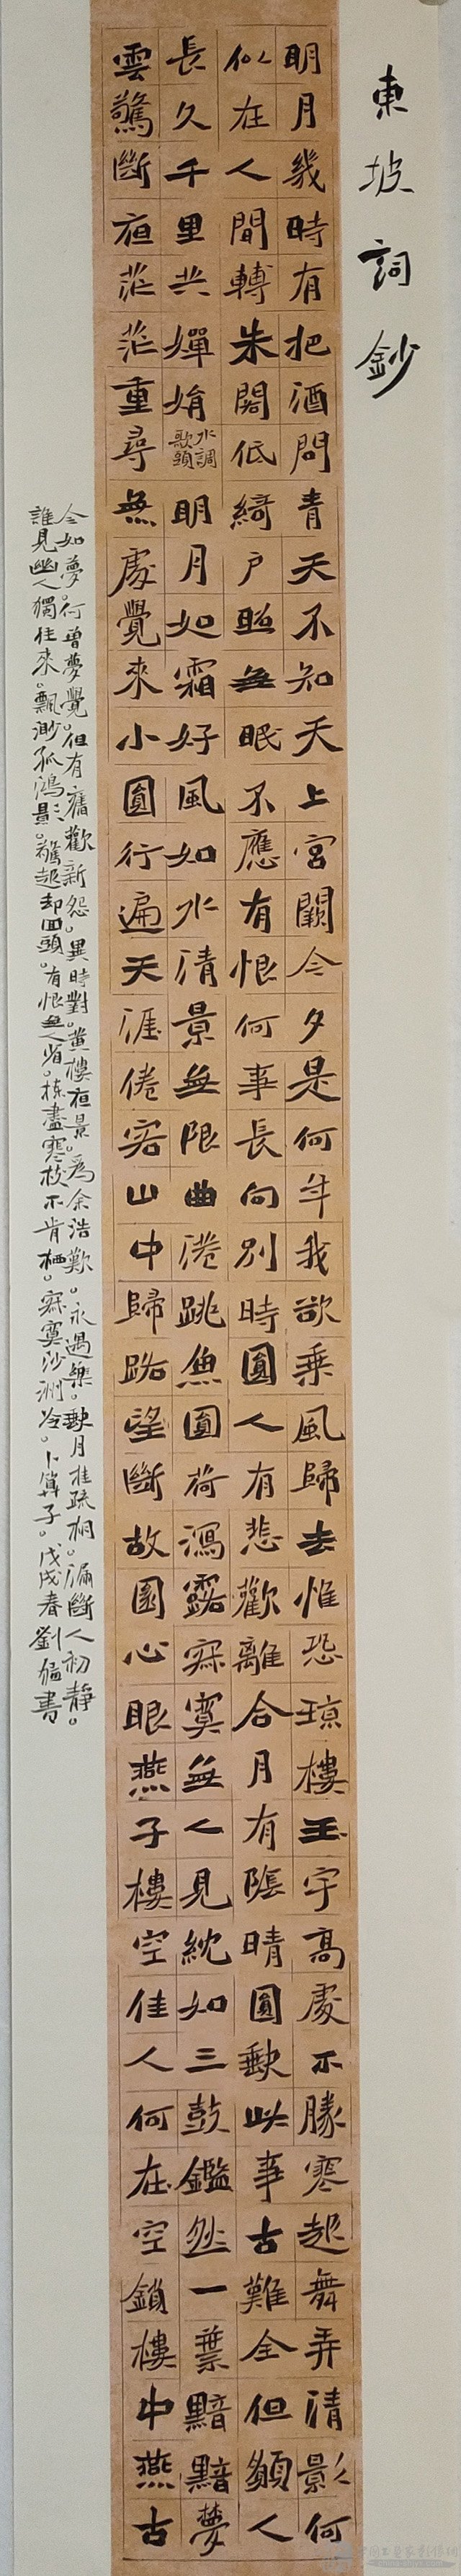 東坡詞鈔
明月幾時有把酒問青天不知天上宮闕今夕是何年我欲乘風歸去惟恐瓊樓玉宇高處不勝寒起舞弄清影何
似在人間轉朱閣低綺戶照無眠不應有恨何事長向別時圓人有悲歡離合月有陰晴圓缺此事古難全但願人
長久千里共嬋娟水調歌頭明月如霜好風如水清景無限曲港跳魚圓荷瀉露寂寞無人見紞如三鼓鏗然一葉黯黯夢
雲驚斷夜茫茫重尋無處覺來小園行遍天涯倦客山中歸路望斷故園心眼燕子樓空佳人何在空鎖樓中燕古
今如夢。何曾夢覺。但有舊歡新怨。異時對。黃樓夜景。為余浩歎。永遇樂。缺月挂疏桐。漏斷人初靜。
誰見幽人獨往來。飄渺孤鴻影。驚起却回頭。有恨無人省。揀盡寒枝不肯栖。寂寞沙洲冷。卜算子。戊戌春劉書